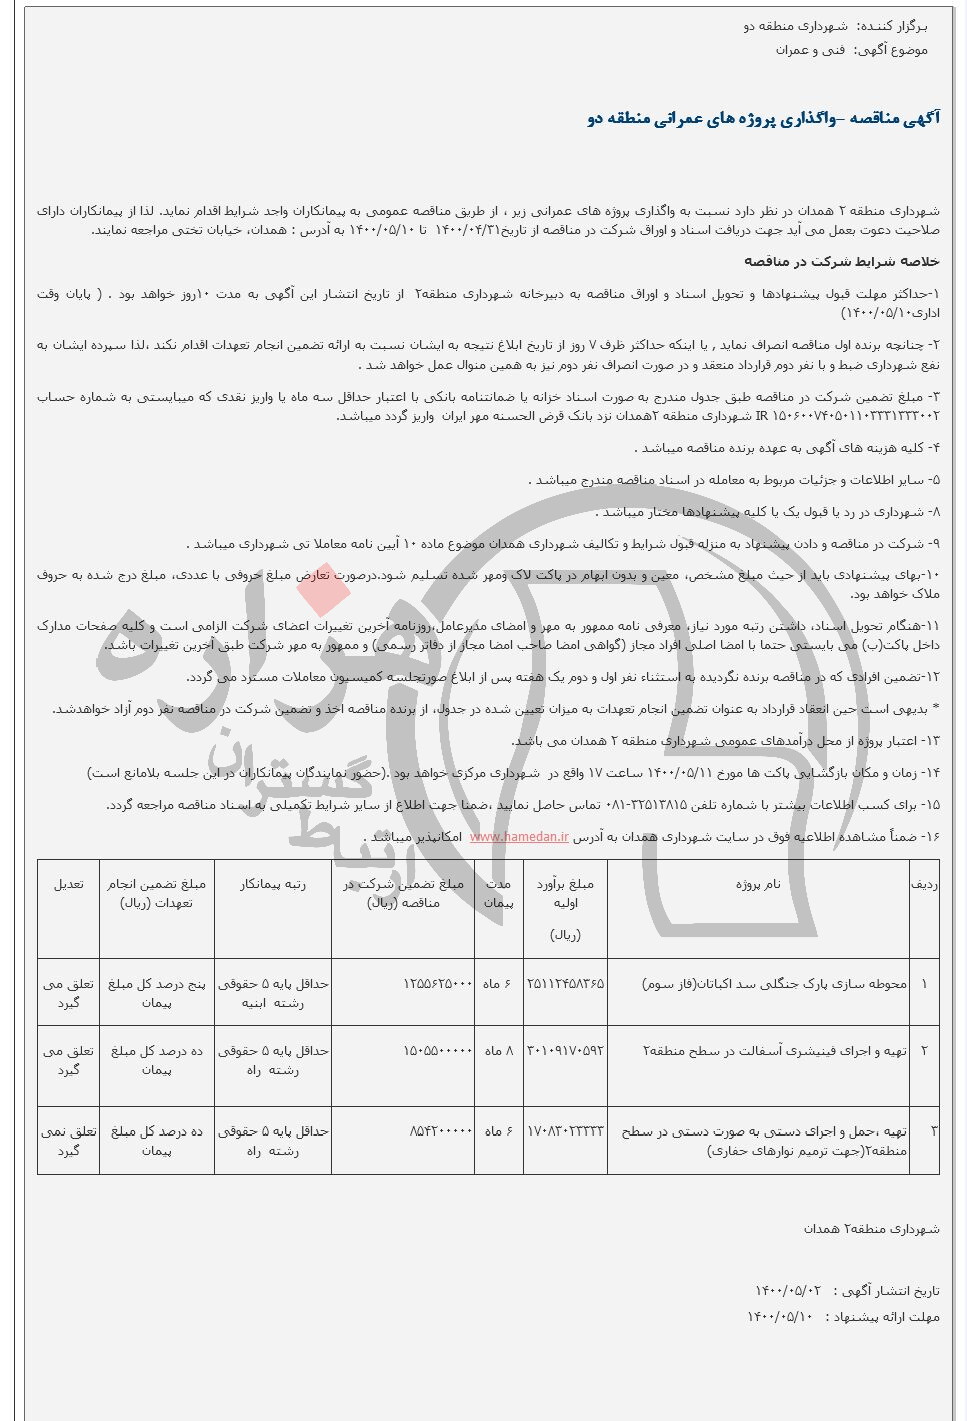 برگزار کننده: شهرداری منطقه دو
موضوع آگهی: فنی و عمران
آگهی مناقصه –واگذاری پروژه های عمرانی منطقه دو
شهرداری منطقه ۲ همدان در نظر دارد نسبت به واگذاری پروژه های عمرانی زیر ، از طریق مناقصه عمومی به پیمانکاران واجد شرایط اقدام نماید. لذا از پیمانکاران دارای
صلاحیت دعوت بعمل می آید جهت دریافت اسناد و اوراق شرکت در مناقصه از تاریخ۱۴۰۰/۰۴/۳۱ تا ۱۴۰۰/۰۵/۱۰ به آدرس : همدان، خیابان تختی مراجعه نمایند.
خلاصه شرایط شرکت در مناقصه
۱-حداکثر مهلت قبول پیشنهادها و تحویل اسناد و اوراق مناقصه به دبیرخانه شهرداری منطقه۲ از تاریخ انتشار این آگهی به مدت ۱۰روز خواهد بود . ( پایان وقت
اداری۱۴۰۰/۰۵/۱۰)
۲- چنانچه برنده اول مناقصه انصراف نماید , یا اینکه حداکثر ظرف ۷ روز از تاریخ ابلاغ نتیجه به ایشان نسبت به ارائه تضمین انجام تعهدات اقدام نکند ،لذا سپرده ایشان به
نفع شهرداری ضبط و با نفر دوم قرارداد منعقد و در صورت انصراف نفر دوم نیز به همین منوال عمل خواهد شد .
۳- مبلغ تضمین شرکت در مناقصه طبق جدول مندرج به صورت اسناد خزانه یا ضمانتنامه بانکی با اعتبار حداقل سه ماه یا واریز نقدی که میبایستی به شماره حساب
IR ۱۵۰۶۰۰۷۴۰۵۰۱۱۰۳۳۳۱۳۳۳۰۰۲ شهرداری منطقه ۲همدان نزد بانک قرض الحسنه مهر ایران واریز گردد میباشد.
۴- کلیه هزینه های آگهی به عهده برنده مناقصه میباشد .
۵- سایر اطلاعات و جزئیات مربوط به معامله در اسناد مناقصه مندرج میباشد .
۸- شهرداری در رد یا قبول یک یا کلیه پیشنهادها مختار میباشد .
۹- شرکت در مناقصه و دادن پیشنهاد به منزله قبول شرایط و تکالیف شهرداری همدان موضوع ماده ۱۰ آیین نامه معاملا تی شهرداری میباشد .
۱۰-بهای پیشنهادی باید از حیث مبلغ مشخص، معین و بدون ابهام در پاکت لاک ومهر شده تسلیم شود.درصورت تعارض مبلغ حروفی با عددی، مبلغ درج شده به حروف
ملاک خواهد بود.
۱۱-هنگام تحویل اسناد، داشتن رتبه مورد نیاز، معرفی نامه ممهور به مهر و امضای مدیرعامل،روزنامه آخرین تغییرات اعضای شرکت الزامی است و کلیه صفحات مدارک
داخل پاکت(ب) می بایستی حتما با امضا اصلی افراد مجاز (گواهی امضا صاحب امضا مجاز از دفاتر رسمی) و ممهور به مهر شرکت طبق آخرین تغییرات باشد.
۱۲-تضمین افرادی که در مناقصه برنده نگردیده به استثناء نفر اول و دوم یک هفته پس از ابلاغ صورتجلسه کمیسیون معاملات مسترد می گردد.
* بدیهی است حین انعقاد قرارداد به عنوان تضمین انجام تعهدات به میزان تعیین شده در جدول، از برنده مناقصه اخذ و تضمین شرکت در مناقصه نفر دوم آزاد خواهدشد.
۱۳- اعتبار پروژه از محل درآمدهای عمومی شهرداری منطقه ۲ همدان می باشد.
۱۴- زمان و مکان بازگشایی پاکت ها مورخ ۱۴۰۰/۰۵/۱۱ ساعت ۱۷ واقع در شهرداری مرکزی خواهد بود .(حضور نمایندگان پیمانکاران در این جلسه بلامانع است)
۱۵- برای کسب اطلاعات بیشتر با شماره تلفن ۳۲۵۱۳۸۱۵-۰۸۱ تماس حاصل نمایید ،ضمنا جهت اطلاع از سایر شرایط تکمیلی به اسناد مناقصه مراجعه گردد.
۱۶- ضمناً مشاهده اطلاعیه فوق در سایت شهرداری همدان به آدرس www.hamedan.ir امکانپذیر میباشد .
ردیف نام پروژه مبلغ برآورد اولیه (ریال) مدت پیمان مبلغ تضمین شرکت در مناقصه (ریال) رتبه پیمانکار مبلغ تضمین انجام تعهدات (ریال) تعدیل
۱ محوطه سازی پارک جنگلی سد اکباتان(فاز سوم) ۲۵۱۱۲۴۵۸۳۶۵ ۶ ماه ۱۲۵۵۶۲۵۰۰۰ حداقل پایه ۵ حقوقی رشته ابنیه پنج درصد کل مبلغ پیمان تعلق می گیرد
۲ تهیه و اجرای فینیشری آسفالت در سطح منطقه۲ ۳۰۱۰۹۱۷۰۵۹۲ ۸ ماه ۱۵۰۵۵۰۰۰۰۰ حداقل پایه ۵ حقوقی رشته راه ده درصد کل مبلغ پیمان تعلق می گیرد
۳ تهیه ،حمل و اجرای دستی به صورت دستی در سطح منطقه۲(جهت ترمیم نوارهای حفاری) ۱۷۰۸۳۰۲۳۳۳۳ ۶ ماه ۸۵۴۲۰۰۰۰۰ حداقل پایه ۵ حقوقی رشته راه ده درصد کل مبلغ پیمان تعلق نمی گیرد
شهرداری منطقه۲ همدان
تاریخ انتشار آگهی : ۱۴۰۰/۰۵/۰۲
مهلت ارائه پیشنهاد : ۱۴۰۰/۰۵/۱۰
هزاره
گستران
ارتباط